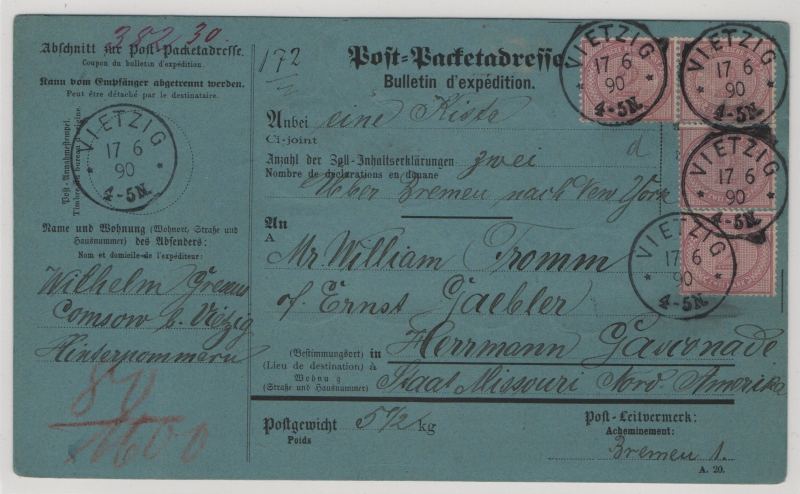 382 30.
Abschnitt zur Post-Packetadresse.
Coupon du bulletin d'expédition.
Kann vom Empfänger abgetrennt werden.
Peut être détaché par le destinataire.
Post-Annahmestempel.
Timbre du bureau d'origine.
VIETZIG
17 6
90
4-5N.
Name und Wohnung (Wohnort, Straße und
Hausnummer) des Absenders:
Nom et domicile de l'expéditeur:
Wilhelm
Comsow b. Vietzig
Hinterpommern
172
Post-Packetadresse
Bulletin d'expédition.
Anbei eine Kiste
Ci-joint
Anzahl der Zoll-Inhaltserklärungen zwei
Nombre de déclarations en douane
Ueber Bremen nach New York
An
A
Mr. William Tromm
of Ernst Gaebler
(Bestimmungsort) in Herrmann Gasconade
(Lieu de destination) à
Wohnung
(Straße und Hausnummer)
Staat Missouri Nord. Amerika
Postgewicht 5 1/2 kg
Poids
Post-Leitvermerk:
Acheminement:
Bremen 1.
A. 20.
VIETZIG
17 6
90
4-5N.
VIETZIG
17 6
90
4-5N.
VIETZIG
17 6
90
4-5N.
VIETZIG
17 6
90
4-5N.